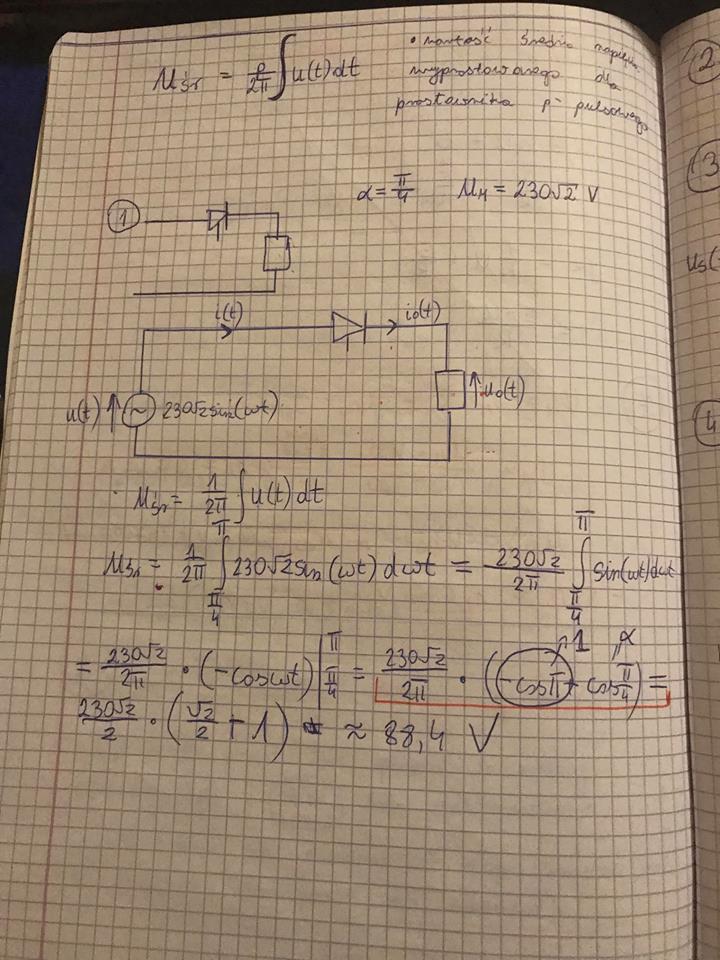 Uśr = p/2π ∫ u(t)dt
• wartość średnia napięcia
wyprostowanego dla
prostownika p-pulsowego
α = π/4 UM = 230√2 V
1
i(t) i0(t)
u(t) ~ 230√2 sin(ωt) u0(t)
Uśr = 1/2π ∫ u(t) dt
Uśr = 1/2π ∫_{π/4}^{π} 230√2 sin(ωt) dωt = 230√2/2π ∫_{π/4}^{π} sin(ωt)dωt
= 230√2/2π · (-cosωt) |_{π/4}^{π} = 230√2/2π · (-cosπ + cos π/4) =
1 α
230√2/2 · (√2/2 + 1) ≈ 88,4 V
2
3
us(
4